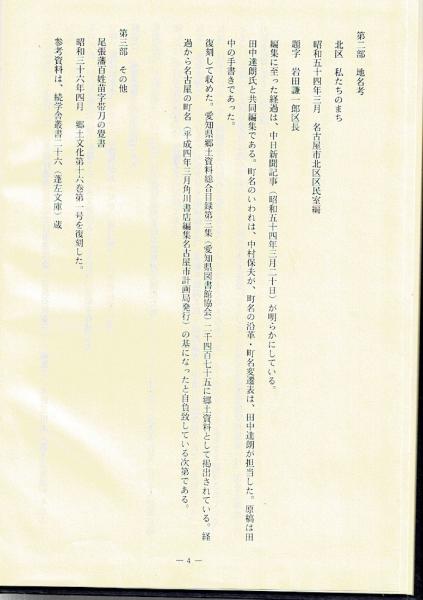 第二部　地名考
北区　私たちのまち
昭和五十四年三月　名古屋市北区区民室編
題字　岩田謙一郎区長
編集に至った経過は、中日新聞記事（昭和五十四年三月二十日）が明らかにしている。
田中達朗氏と共同編集である。町名のいわれは、中村保夫が、町名の沿革・町名変遷表は、田中達朗が担当した。原稿は田
中の手書きであった。
復刻して収めた。愛知県郷土資料総合目録第三集（愛知県図書館協会）二千四百七十五に郷土資料として掲出されている。経
過から名古屋の町名（平成四年三月角川書店編集名古屋市計画局発行）の基になったと自負致している次第である。
第三部　その他
尾張藩百姓苗字帯刀の覺書
昭和三十六年四月　郷土文化第十六巻第一号を復刻した。
参考資料は、続学舎叢書二十六（蓬左文庫）蔵
— 4 —